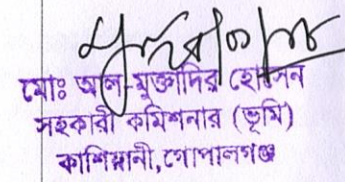 মোঃ আল-মুক্তাদির হোসেন
সহকারী কমিশনার (ভূমি)
কাশিয়ানী,গোপালগঞ্জ